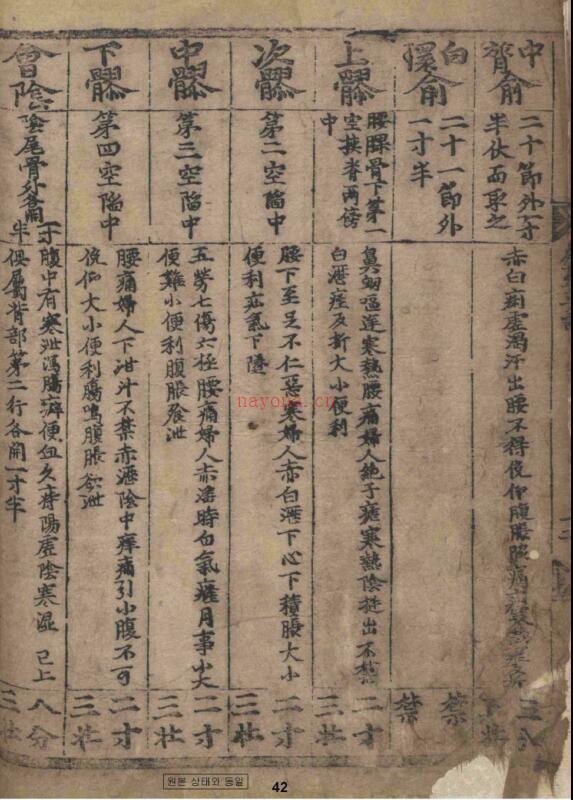 中膂俞
二十節外一寸
半伏而取之
赤白痢虛渴汗出腰不得俛仰腹脹脇痛
三分
白環俞
二十一節外
一寸半
禁
禁
上髎
腰髁骨下第一
空挾脊兩傍
中
鼻衄嘔逆寒熱腰痛婦人絶子瘧寒熱陰挺出不禁
白瀝痓反折大小便利
二寸
三壯
次髎
第二空陷中
腰下至足不仁惡寒婦人赤白瀝下心下積脹大小
便利疝氣下墜
二寸
三壯
中髎
第三空陷中
五勞七傷六極腰痛婦人赤淫時白氣癃月事小大
便難小便利腹脹飱泄
二寸
三壯
下髎
第四空陷中
腰痛婦人下泔汁不禁赤瀝陰中痒痛引小腹不可
俛仰大小便利腸鳴腹脹欲泄
二寸
三壯
會陰
陰尾骨外各開一寸
半
腹中有寒泄瀉腸癖便血久痔陽虛陰寒濕 已上
俱屬背部第二行各開一寸半
八分
三壯
nayona.cn
원본 상태와 동일
42